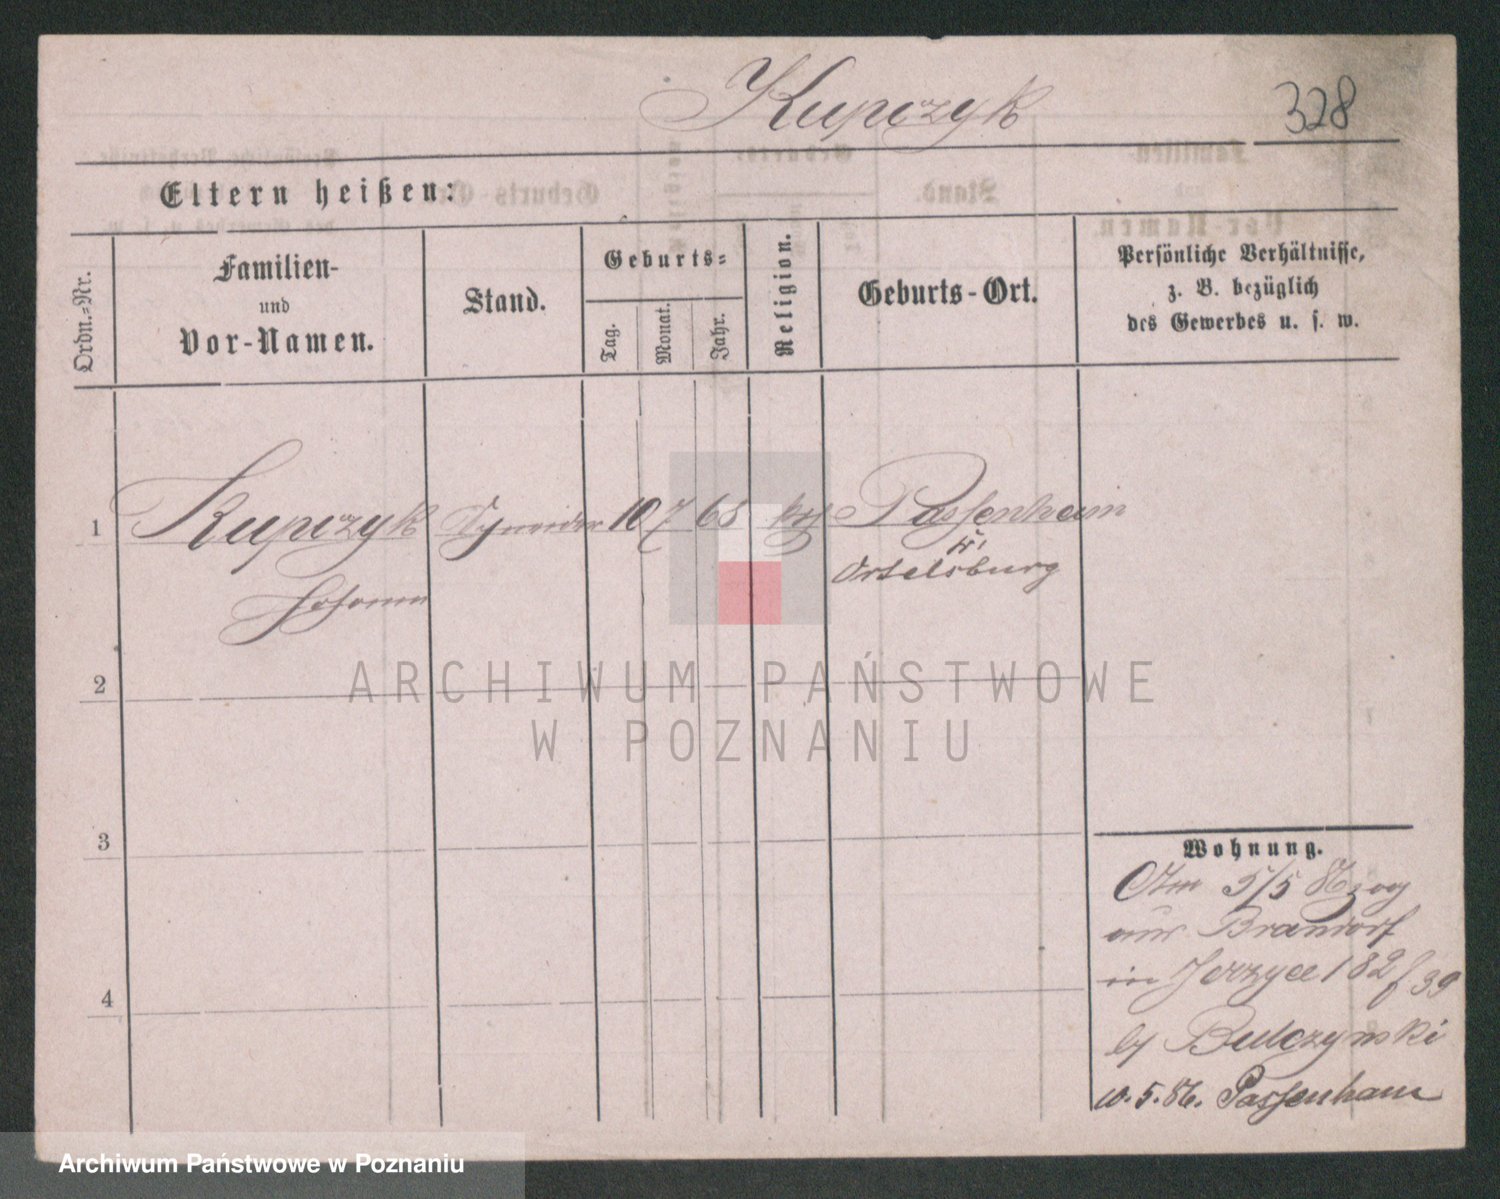 Kupczyk 328
Eltern heißen:
Ordn.-Nr.
Familien-
und
Vor-Namen.
Stand.
Geburts-
Tag.
Monat.
Jahr.
Religion.
Geburts-Ort.
Persönliche Verhältnisse,
z. B. bezüglich
des Gewerbes u. s. w.
1 Kupczyk 10 7 68 kth Passenheim
Kr.
Ortelsburg
Johann
2
3
4
Wohnung.
Am 5/5 86 zog
aus
in Jerzyce 182 f 39
by Bulczynski
10.5.86. Passenheim
ARCHIWUM PAŃSTWOWE
W POZNANIU
Archiwum Państwowe w Poznaniu